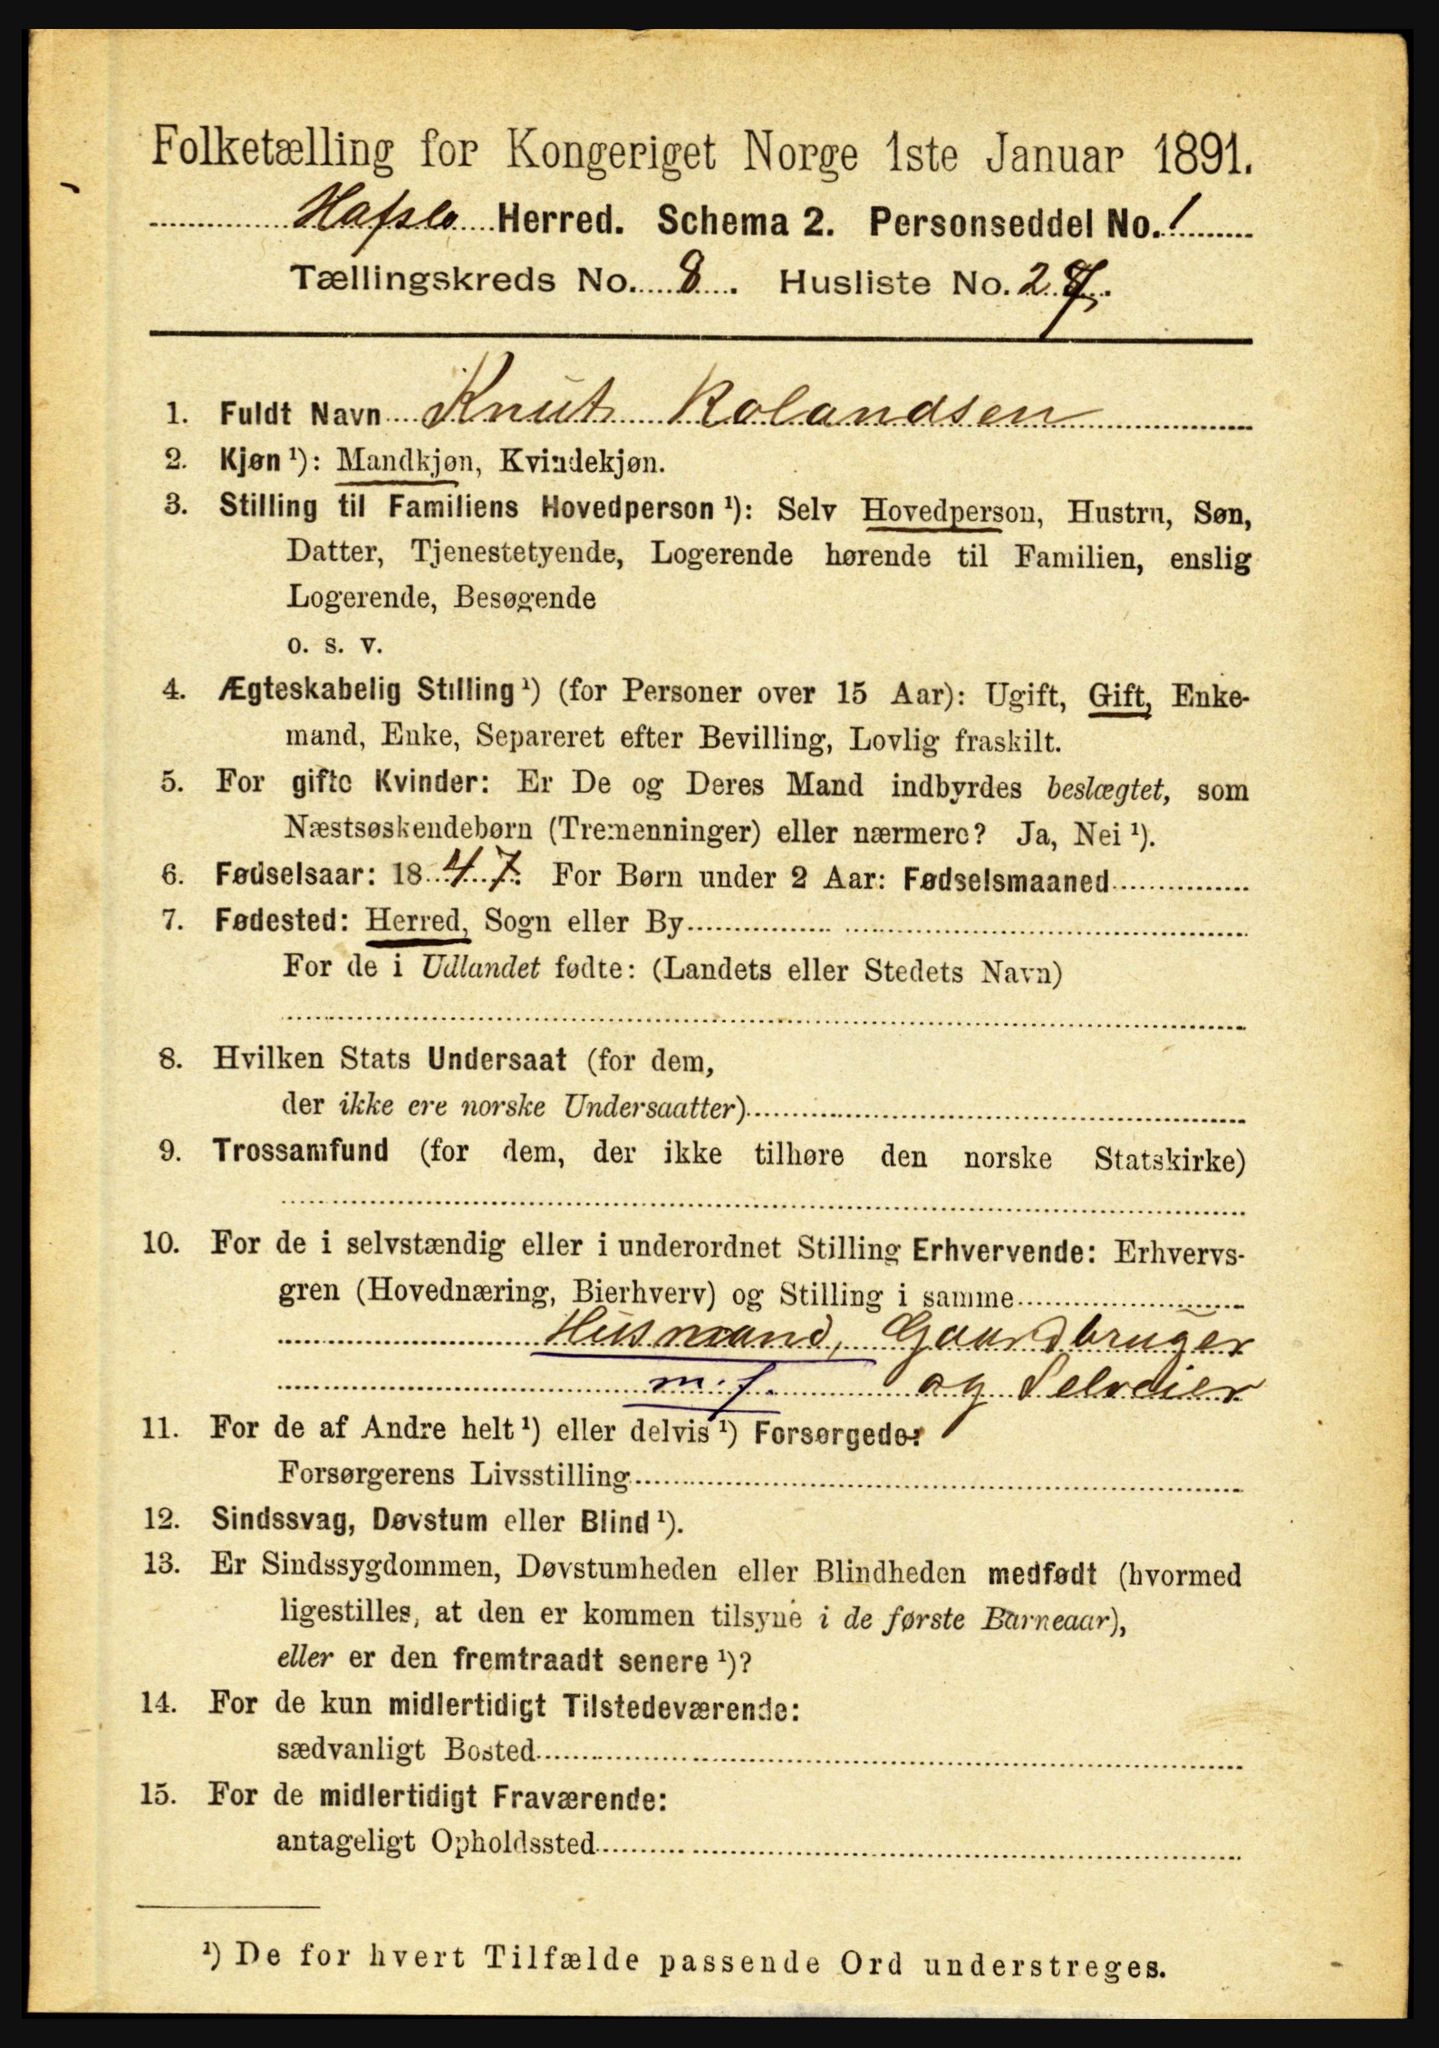 Folketælling for Kongeriget Norge 1ste Januar 1891.
Hafslo Herred. Schema 2. Personseddel No. 1
Tællingskreds No. 8. Husliste No. 27.
1. Fuldt Navn Knut Rolandsen
2. Kjøn ¹): Mandkjøn, Kvindekjøn.
3. Stilling til Familiens Hovedperson ¹): Selv Hovedperson, Hustru, Søn,
Datter, Tjenestetyende, Logerende hørende til Familien, enslig
Logerende, Besøgende
o. s. v.
4. Ægteskabelig Stilling ¹) (for Personer over 15 Aar): Ugift, Gift, Enke-
mand, Enke, Separeret efter Bevilling, Lovlig fraskilt.
5. For gifte Kvinder: Er De og Deres Mand indbyrdes beslægtet, som
Næstsøskendebørn (Tremenninger) eller nærmere? Ja, Nei ¹).
6. Fødselsaar: 1847. For Børn under 2 Aar: Fødselsmaaned
7. Fødested: Herred, Sogn eller By
For de i Udlandet fødte: (Landets eller Stedets Navn)
8. Hvilken Stats Undersaat (for dem,
der ikke ere norske Undersaatter)
9. Trossamfund (for dem, der ikke tilhøre den norske Statskirke)
10. For de i selvstændig eller i underordnet Stilling Erhvervende: Erhvervs-
gren (Hovednæring, Bierhverv) og Stilling i samme
Husmand, Gaardbruger
m. j. og Selveier
11. For de af Andre helt ¹) eller delvis ¹) Forsørgede:
Forsørgerens Livsstilling
12. Sindssvag, Døvstum eller Blind ¹).
13. Er Sindssygdommen, Døvstumheden eller Blindheden medfødt (hvormed
ligestilles, at den er kommen tilsyne i de første Barneaar),
eller er den fremtraadt senere ¹)?
14. For de kun midlertidigt Tilstedeværende:
sædvanligt Bosted
15. For de midlertidigt Fraværende:
antageligt Opholdssted
¹) De for hvert Tilfælde passende Ord understreges.